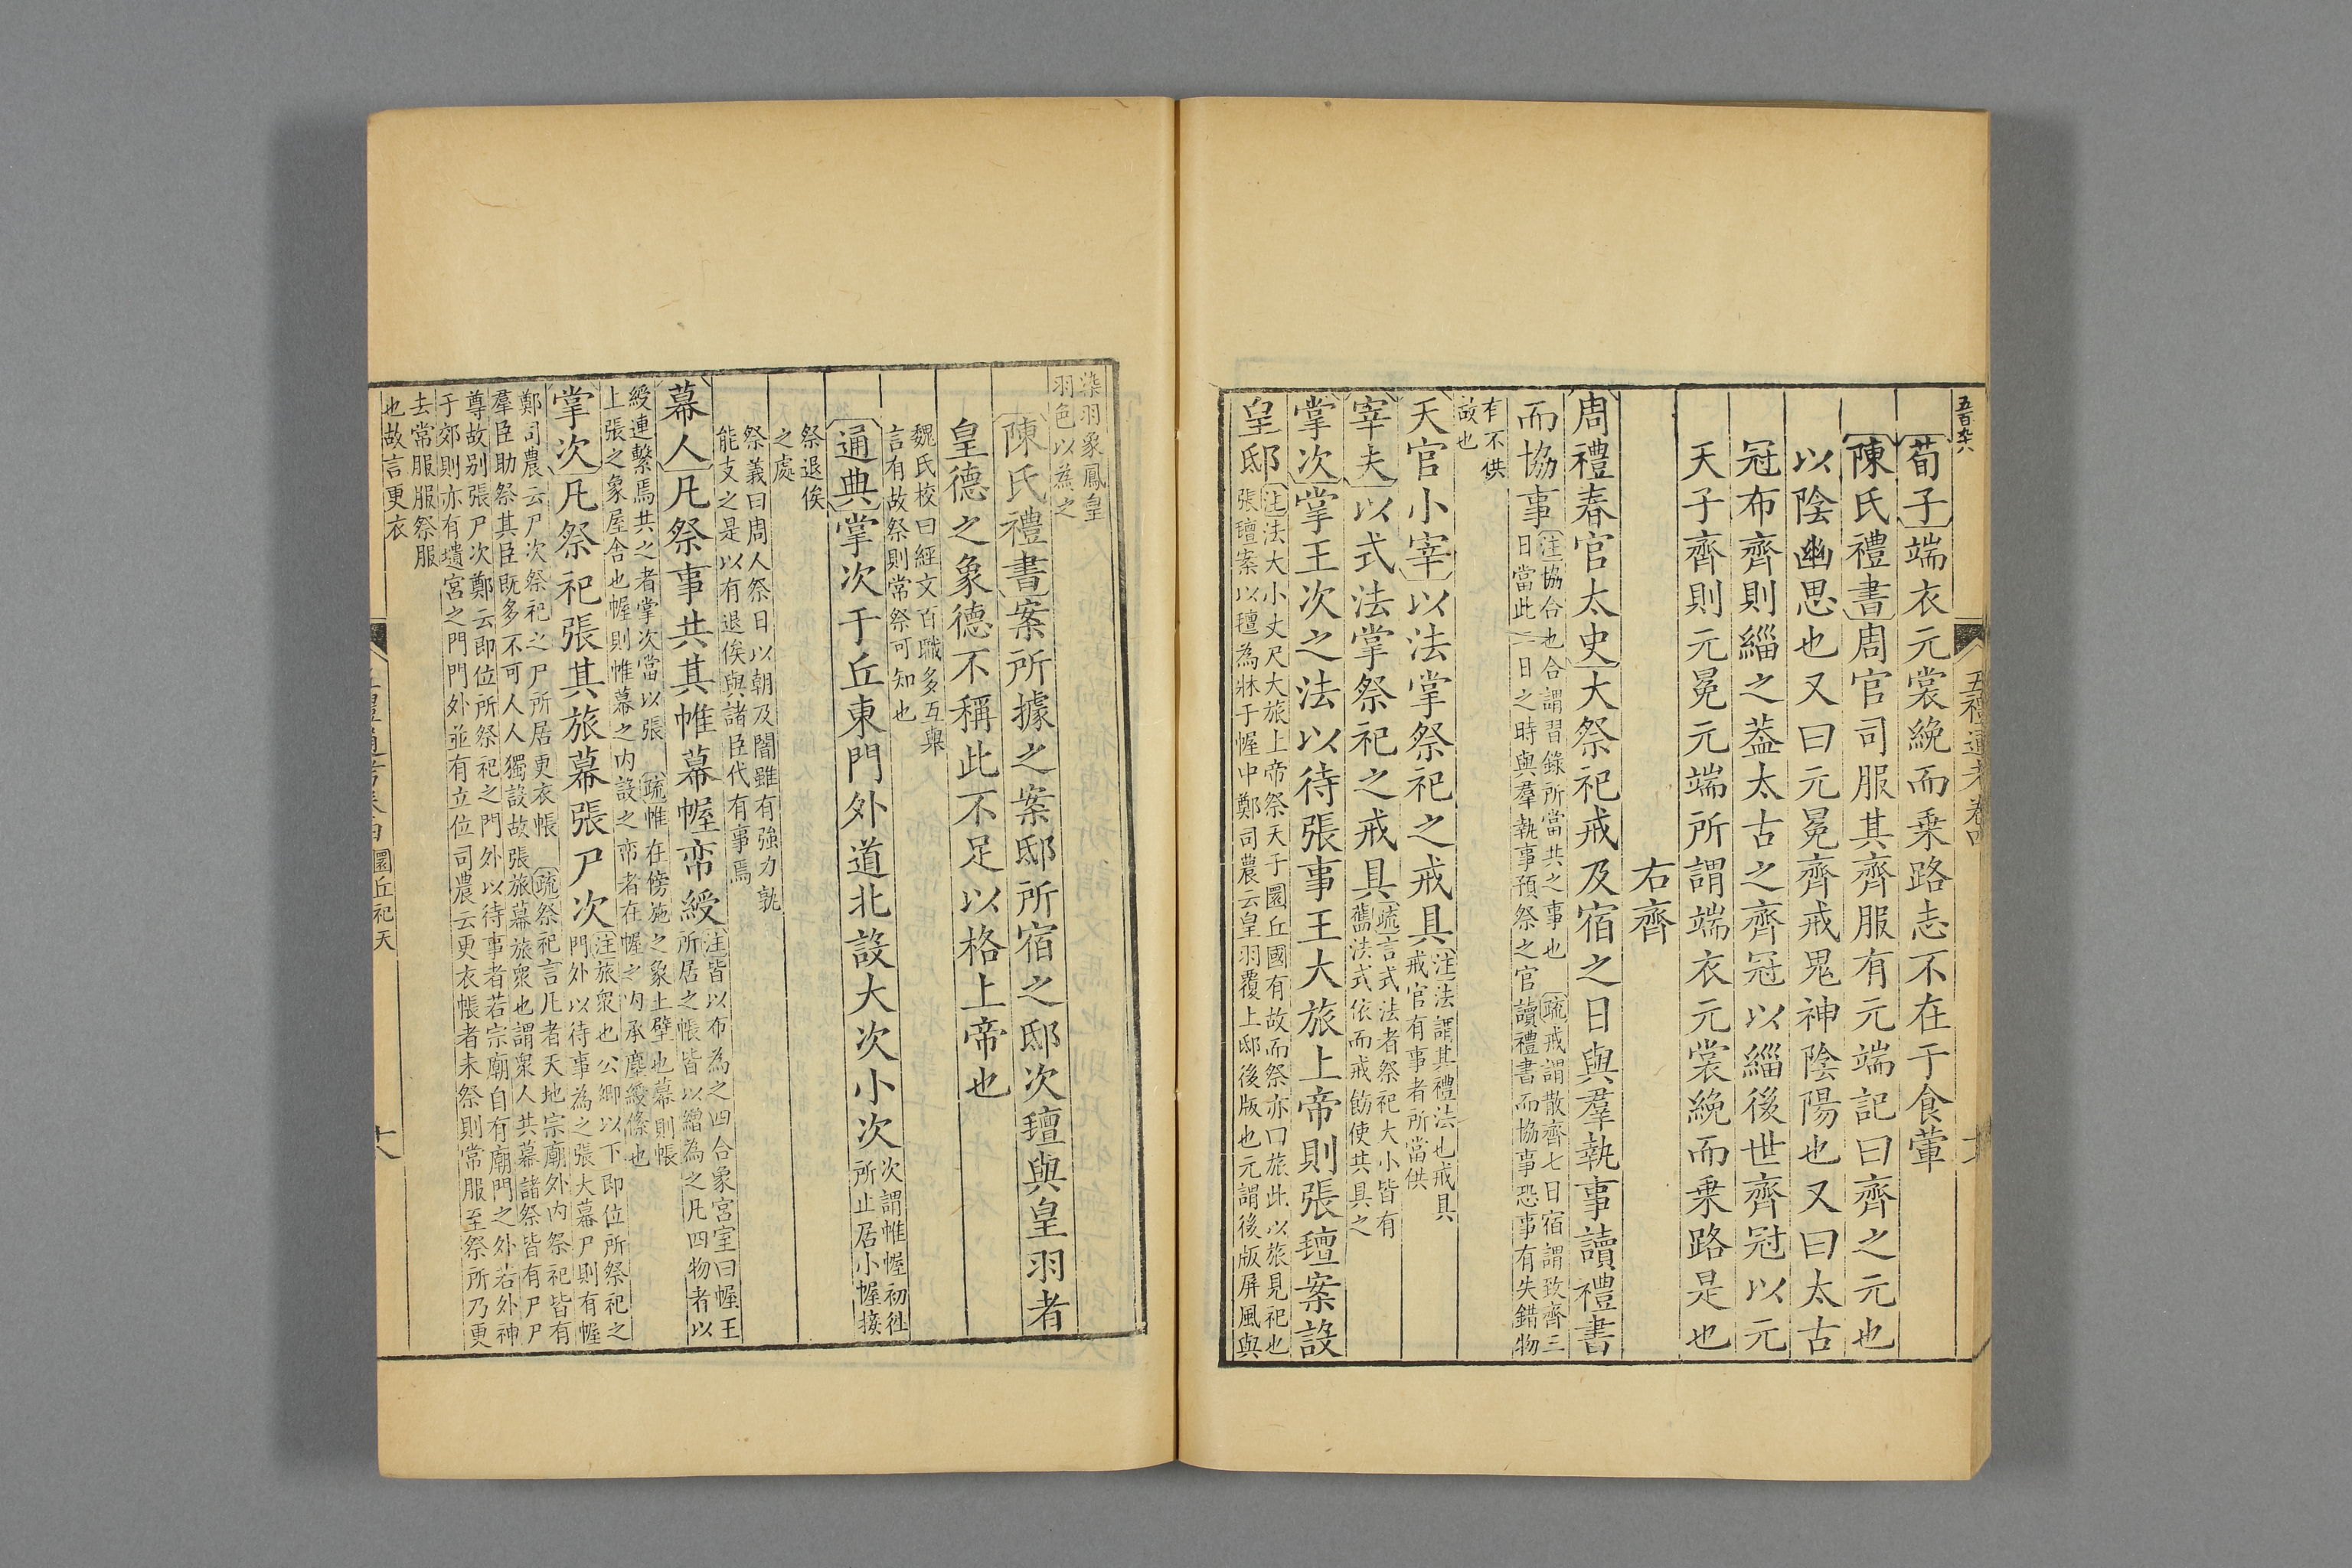 五禮通考卷四
荀子端衣元裳絻而乘路志不在于食葷
陳氏禮書周官司服其齊服有元端記曰齊之元也
以陰幽思也又曰元冕齊戒鬼神陰陽也又曰太古
冠布齊則緇之葢太古之齊冠以緇後世齊冠以元
天子齊則元冕元端所謂端衣元裳絻而乘路是也
右齊
周禮春官太史大祭祀戒及宿之日與羣執事讀禮書
而協事
注協合也合謂習錄所當共之事也 疏戒謂散齊七日宿謂致齊三
日當此二日之時與羣執事預祭之官讀禮書而協事恐事有失錯物
有不供
故也
天官小宰以法掌祭祀之戒具
注法謂其禮法也戒具
戒官有事者所當供
宰夫以式法掌祭祀之戒具
疏言式法者祭祀大小皆有
舊法式依而戒飭使共具之
掌次掌王次之法以待張事王大旅上帝則張氊案設
皇邸
注法大小丈尺大旅上帝祭天于圜丘國有故而祭亦曰旅此以旅見祀也
張氊案以氊為牀于幄中鄭司農云皇羽覆上邸後版也元謂後版屏風與
染羽象鳳皇
羽色以為之
陳氏禮書案所據之案邸所宿之邸次氊與皇羽者
皇德之象德不稱此不足以格上帝也
魏氏校曰經文百職多互舉
言有故祭則常祭可知也
通典掌次于丘東門外道北設大次小次
次謂帷幄初往
所止居小幄接
祭退俟
之處
祭義曰周人祭日以朝及闇雖有強力孰
能支之是以有退俟與諸臣代有事焉
幕人凡祭事共其帷幕幄帟綬
注皆以布為之四合象宮室曰幄王
所居之帳皆以繒為之凡四物者以
綬連繫焉共之者掌次當以張 疏帷在傍施之象土壁也幕則帳
上張之象屋舍也幄則帷幕之内設之帟者在幄之内承塵綬絛也
掌次凡祭祀張其旅幕張尸次
注旅衆也公卿以下即位所祭祀之
門外以待事為之張大幕尸則有幄
鄭司農云尸次祭祀之尸所居更衣帳 疏祭祀言凡者天地宗廟外内祭祀皆有
羣臣助祭其臣既多不可人人獨設故張旅幕旅衆也謂衆人共幕諸祭皆有尸尸
尊故别張尸次鄭云即位所祭祀之門外以待事者若宗廟自有廟門之外若外神
于郊則亦有壝宮之門門外並有立位司農云更衣帳者未祭則常服至祭所乃更
去常服服祭服
也故言更衣
圜丘祀天
十八